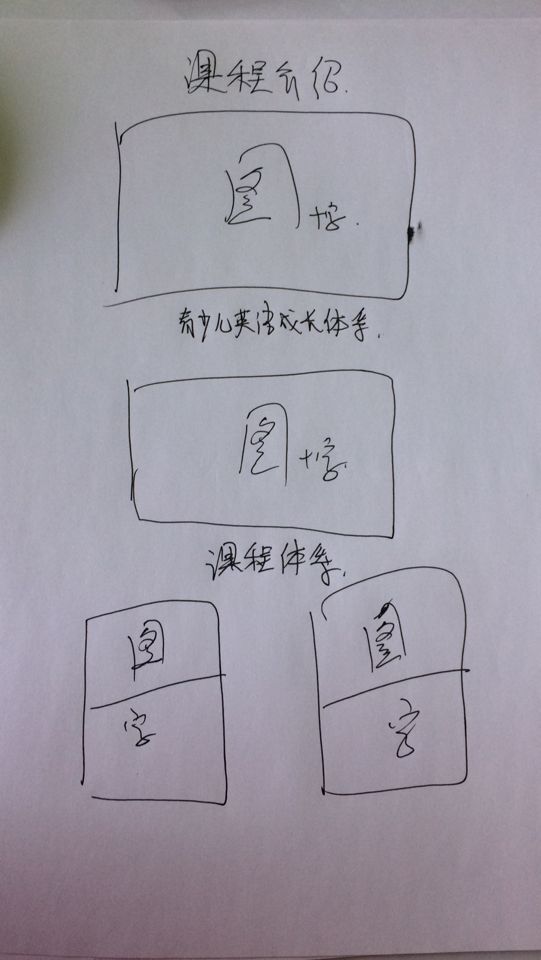 课程介绍.
图+字.
青少儿英语成长体系.
图+字.
课程体系.
图
图
字
字